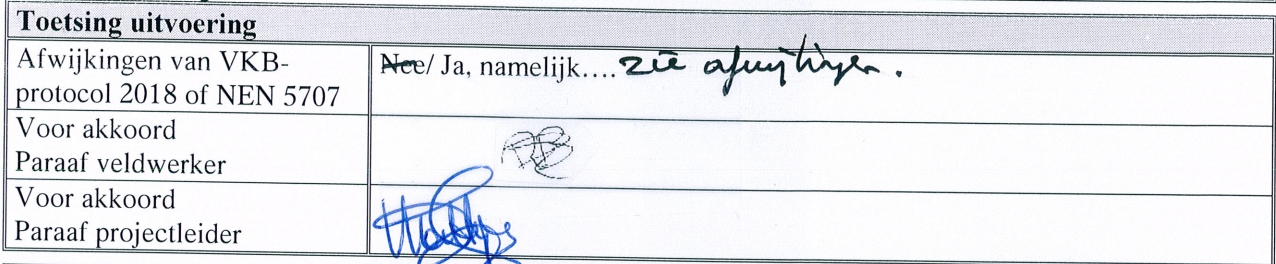 Toetsing uitvoering
Afwijkingen van VKB-
protocol 2018 of NEN 5707
Nee/ Ja, namelijk.... zie afwijkingen.
Voor akkoord
Paraaf veldwerker
Voor akkoord
Paraaf projectleider